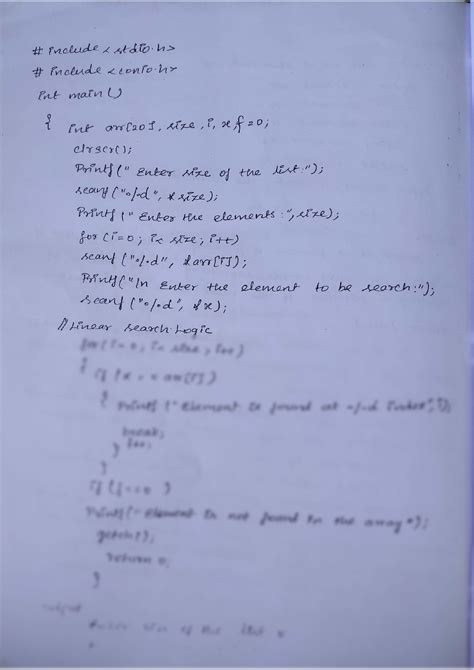 # include < stdio.h>
# include <conio.h>
int main()
{ int arr[20], size, i, x, f=0;
clrscr();
Printf(" Enter size of the list:");
scanf ("%d", &size);
Printf (" Enter the elements :", size);
for (i=0; i< size; i++)
scanf ("%d", &arr[i]);
Printf("\n Enter the element to be search:");
scanf ("%d", &x);
// Linear search Logic
for(i=0; i< size; i++)
{ if (x == arr[i])
{ Printf ("Element is found at %d index", i);
break;
}
}
if (f==0)
Printf("Element is not found in the array");
getch();
return 0;
}
output
size of the list